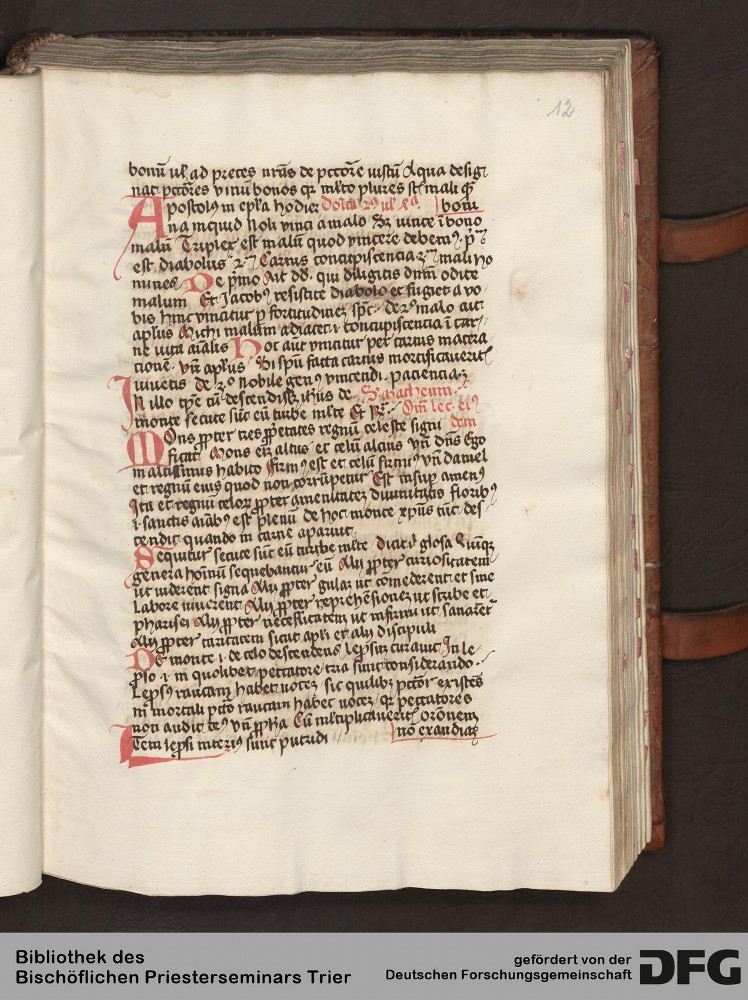 12
bonū ul' ad preces nr̄as de pctōre iustū Aqua desig
nat pctōres vinū bonos qr ml'to plures st mali qz
Apostolus in ep'la hodier
bonū
na inquid Noli vinci a malo Sz vince ī bono
malū Triplex est malū quod vincere debemus
est diabolus Carnis concupiscencia mali ho
mines De pīmo Ait dd. qui diligitis dn̄m odite
malum Et Jacobus resistite diabolo et fugiet a vo
bis hinc vincatur p fortitudinez de malo ait
apl'us Michi malum adiacet i concupiscencia ī car
ne iuxta aīalis Hoc aut vincatur per carnis macera
cionē vn̄ apl'us Si sp̄u facta carnis mortificaueritis
viuetis de nobile genus vincendi paciencia
In illo tp̄e cū descendisz ih̄us de S. matheum
monte secute sūt eū turbe ml'te Et
Mons ppter tres pp̄etates regnū celeste signi
ficat Mons em̄ altus et celū alcius vn̄ dn̄s Ego
in altissimis habito Firmus est et celū firmius vn̄ daniel
et regnū eius quod non corrūpetur Est insup amenus
Ita et regnū celorz ppter amenitatez diuturnitatis floribus
i sanctis aīabus est plenū de hoc monte xp̄us tūc des
cendit quando in carne aparuit
Sequitur secute sūt eū turbe ml'te dicit glosa Quinqz
genera hoīnū sequebantur eū Alij ppter curiositatem
ut viderent signa Alij ppter gulaz ut comederent et sine
labore viuerent Alij ppter reprehēsionez ut scribe et
pharisei Alij ppter necessitatem ut infirmi ut sanarent
Alij ppter caritatem sicut apl'i et alij discipuli
De monte i de celo descendens lep'sum curauit In le
p'so i in quolibet peccatore tria sunt considerando
Lep'sus raucam habet vocez sic quilibz pctōr existēs
in mortali pctō raucam habet vocez qz peccatores
non audit deus vn̄ pp̄ha Cū ml'tiplicaueritis orōnem
nō exaudiaz
Item lep'si interius sunt putridi
Bibliothek des
Bischöflichen Priesterseminars Trier
gefördert von der
Deutschen Forschungsgemeinschaft
DFG